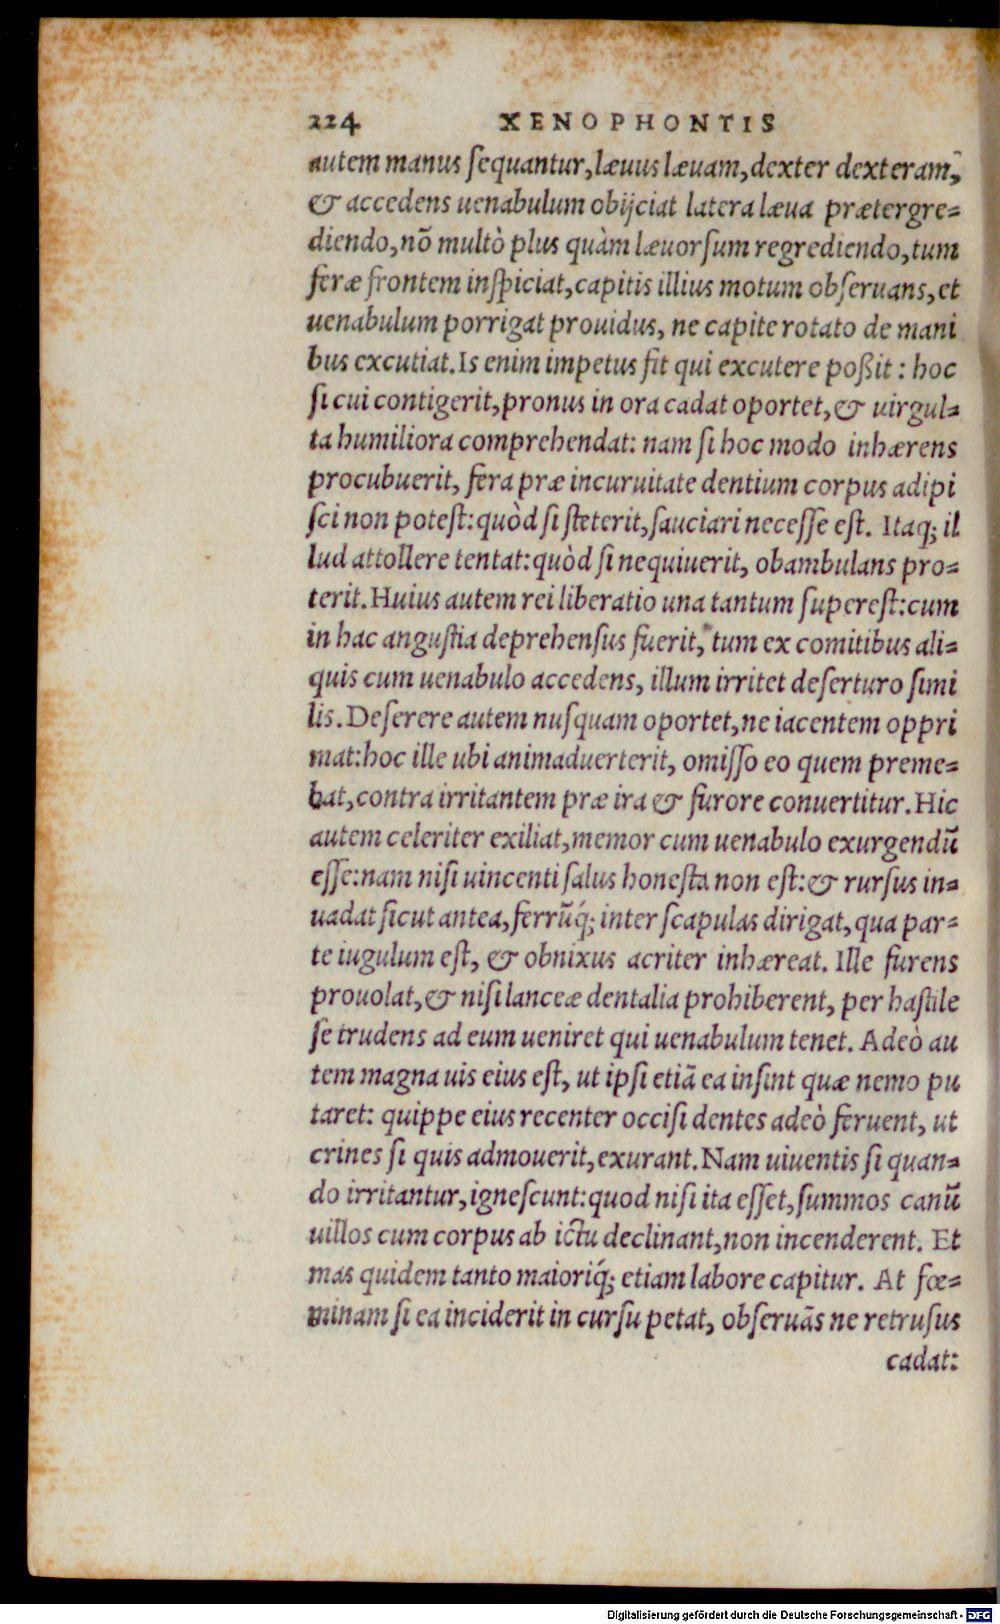 224 XENOPHONTIS
autem manus ſequantur, læuus læuam, dexter dexteram,
& accedens uenabulum obijciat latera læua prætergre=
diendo, nō multò plus quàm læuorſum regrediendo, tum
feræ frontem inſpiciat, capitis illius motum obſeruans, et
uenabulum porrigat prouidus, ne capite rotato de mani
bus excutiat. Is enim impetus fit qui excutere poßit: hoc
ſi cui contigerit, pronus in ora cadat oportet, & uirgul=
ta humiliora comprehendat: nam ſi hoc modo inhærens
procubuerit, fera præ incuruitate dentium corpus adipi
ſci non poteſt: quòd ſi ſteterit, ſauciari neceſſe eſt. Itaq; il
lud attollere tentat: quòd ſi nequiuerit, obambulans pro=
terit. Huius autem rei liberatio una tantum ſupereſt: cum
in hac anguſtia deprehenſus fuerit, tum ex comitibus ali=
quis cum uenabulo accedens, illum irritet deſerturo ſimi
lis. Deſerere autem nuſquam oportet, ne iacentem oppri
mat: hoc ille ubi animaduerterit, omiſſo eo quem preme=
bat, contra irritantem præ ira & furore conuertitur. Hic
autem celeriter exiliat, memor cum uenabulo exurgendū
eſſe: nam niſi uincenti ſalus honeſta non eſt: & rurſus in=
uadat ſicut antea, ferrūq́; inter ſcapulas dirigat, qua par=
te iugulum eſt, & obnixus acriter inhæreat. Ille furens
prouolat, & niſi lanceæ dentalia prohiberent, per haſtile
ſe trudens ad eum ueniret qui uenabulum tenet. Adeò au
tem magna uis eius eſt, ut ipſi etiā ea inſint quæ nemo pu
taret: quippe eius recenter occiſi dentes adeò feruent, ut
crines ſi quis admouerit, exurant. Nam uiuentis ſi quan=
do irritantur, igneſcunt: quod niſi ita eſſet, ſummos canū
uillos cum corpus ab ictu declinant, non incenderent. Et
mas quidem tanto maioriq́; etiam labore capitur. At fœ=
minam ſi ea inciderit in curſu petat, obſeruās ne retruſus
cadat:
Digitalisierung gefördert durch die Deutsche Forschungsgemeinschaft - DFG